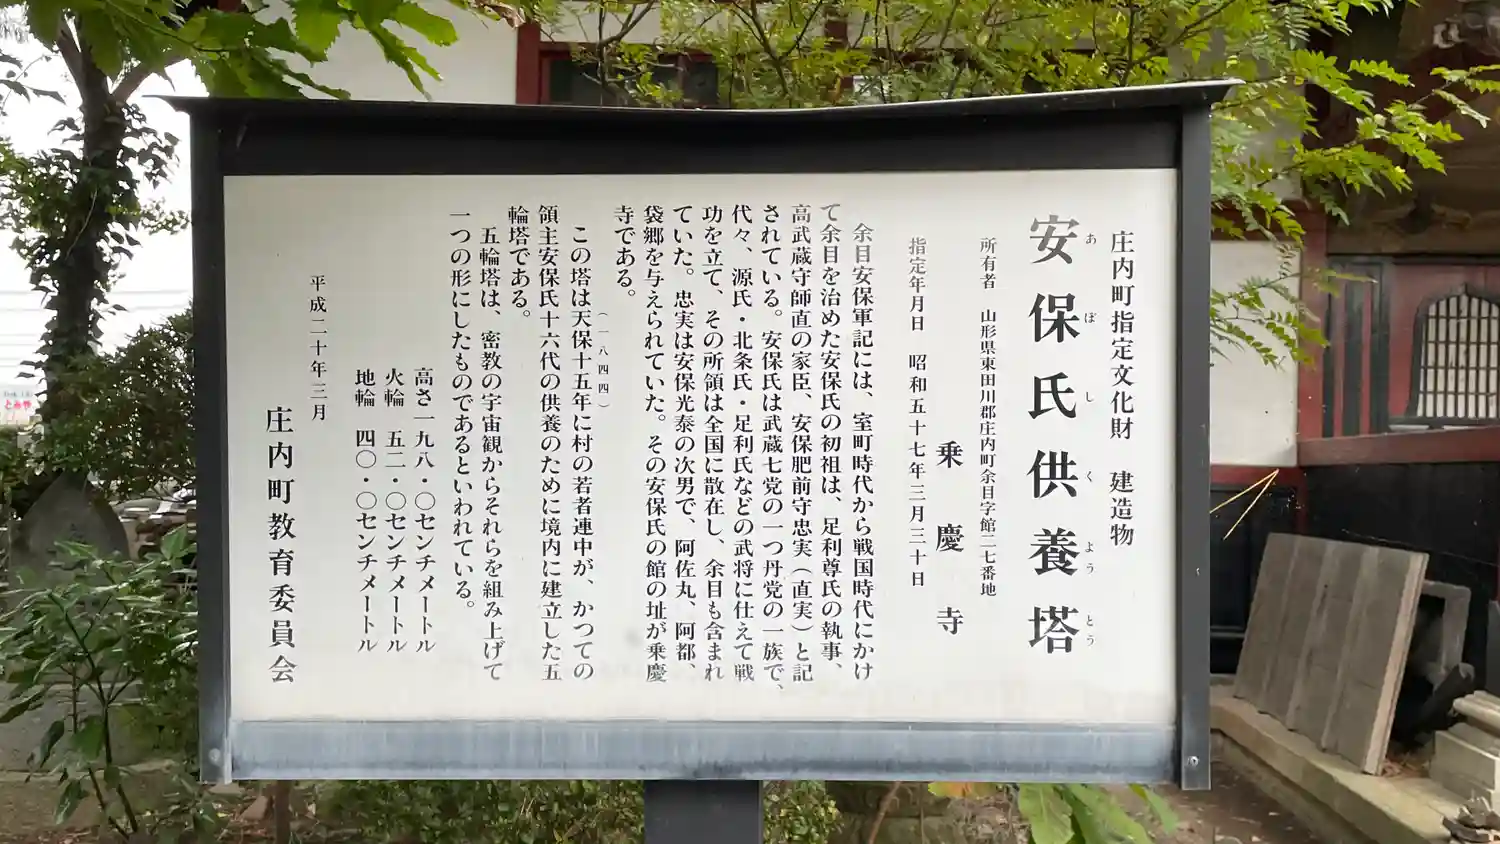 庄内町指定文化財　建造物
安保氏供養塔
あぼしくようとう
所有者　山形県東田川郡庄内町余目字館二七番地
乗慶寺
指定年月日　昭和五十七年三月三十日
余目安保軍記には、室町時代から戦国時代にかけ
て余目を治めた安保氏の初祖は、足利尊氏の執事、
高武蔵守師直の家臣、安保肥前守忠実（直実）と記
されている。安保氏は武蔵七党の一つ丹党の一族で、
代々、源氏・北条氏・足利氏などの武将に仕えて戦
功を立て、その所領は全国に散在し、余目も含まれ
ていた。忠実は安保光泰の次男で、阿佐丸、阿都、
袋郷を与えられていた。その安保氏の館の址が乗慶
寺である。
（一八四四）
この塔は天保十五年に村の若者連中が、かつての
領主安保氏十六代の供養のために境内に建立した五
輪塔である。
五輪塔は、密教の宇宙観からそれらを組み上げて
一つの形にしたものであるといわれている。
高さ一九八・〇センチメートル
火輪　五二・〇センチメートル
地輪　四〇・〇センチメートル
平成二十年三月
庄内町教育委員会
とみや